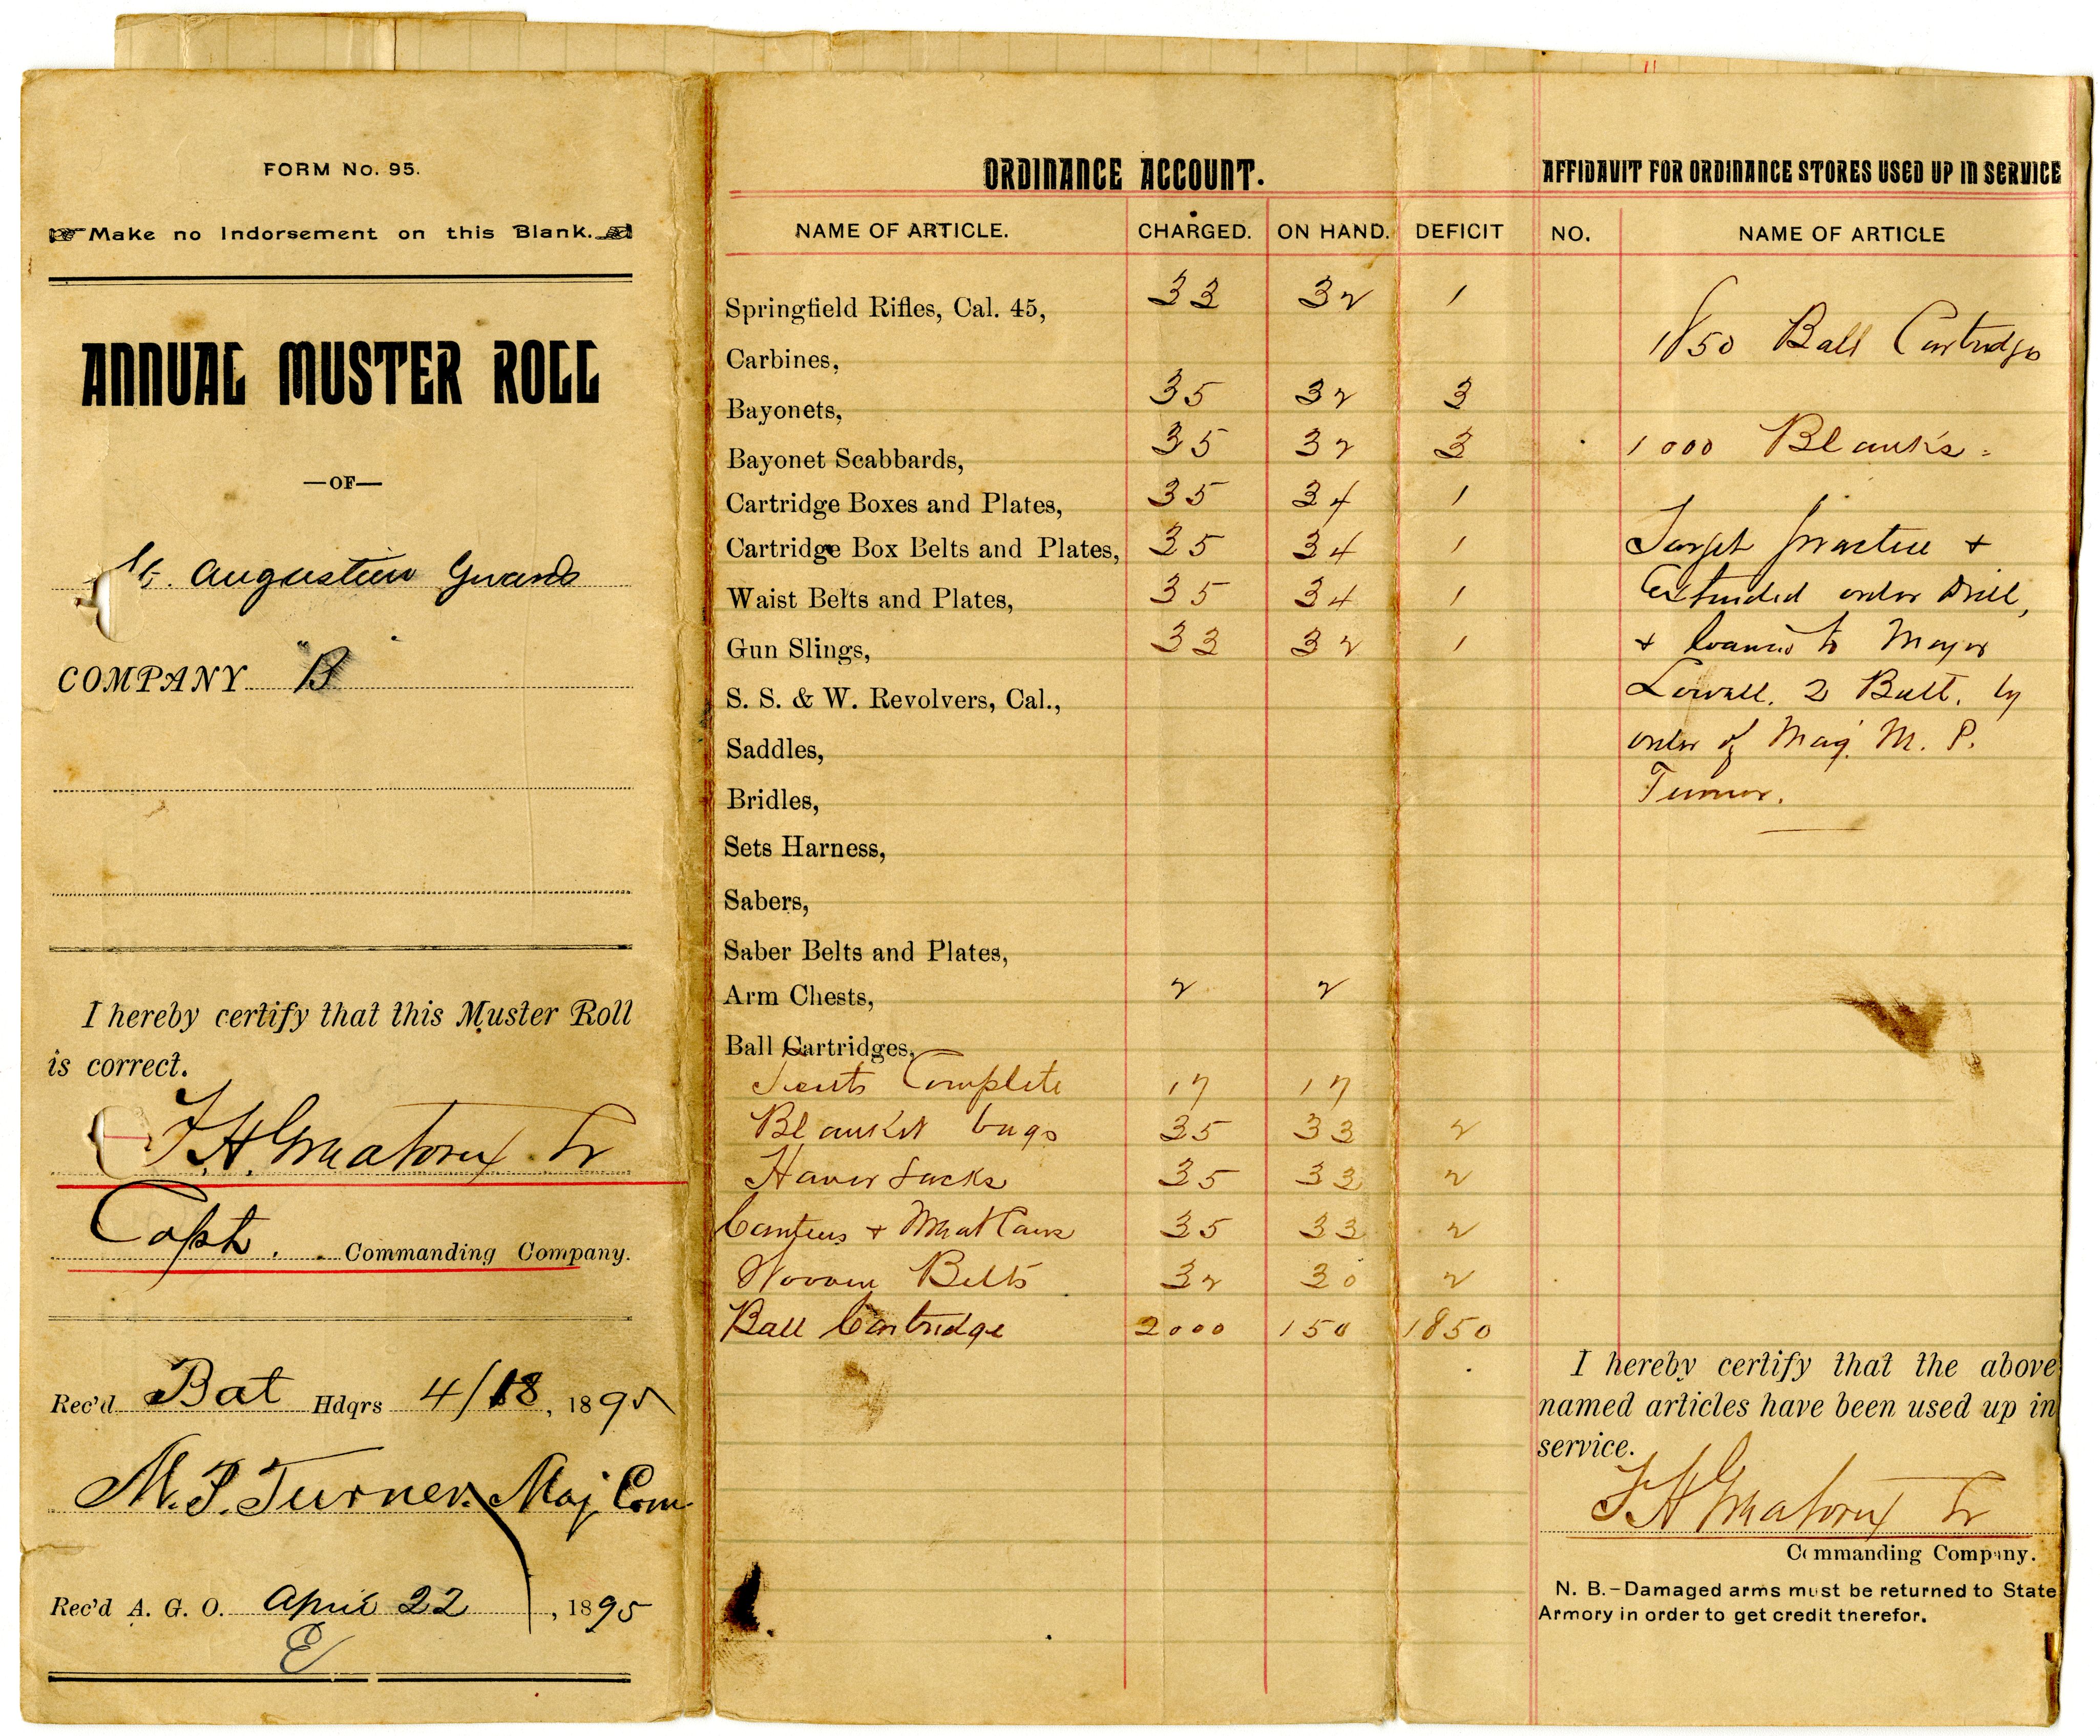 FORM No. 95.
Make no Indorsement on this Blank.
ANNUAL MUSTER ROLL
—OF—
St. Augustine Guards
COMPANY "B"
I hereby certify that this Muster Roll
is correct.
Capt. Commanding Company.
Rec'd Bat Hdqrs 4/18, 1895
M. P. Turner. Maj Com
Rec'd A. G. O. April 22, 1895
E
ORDINANCE ACCOUNT.
NAME OF ARTICLE. CHARGED. ON HAND. DEFICIT
Springfield Rifles, Cal. 45, 33 32 1
Carbines,
Bayonets, 35 32 3
Bayonet Scabbards, 35 32 3
Cartridge Boxes and Plates, 35 34 1
Cartridge Box Belts and Plates, 35 34 1
Waist Belts and Plates, 35 34 1
Gun Slings, 33 32 1
S. S. & W. Revolvers, Cal.,
Saddles,
Bridles,
Sets Harness,
Sabers,
Saber Belts and Plates,
Arm Chests, 2 2
Ball Cartridges,
Tents Complete 17 17
Blanket bags 35 33 2
Haver Sacks 35 33 2
Canteens + Meat Cans 35 33 2
Woven Belts 32 30 2
Ball Cartridge 2000 150 1850
AFFIDAVIT FOR ORDINANCE STORES USED UP IN SERVICE
NO. NAME OF ARTICLE
1850 Ball Cartridges
1000 Blanks
Target practice +
Extended order Drill,
+ loaned to Major
Lovell. 2 Batt. by
order of Maj. M. P.
Turner.
I hereby certify that the above
named articles have been used up in
service.
Commanding Company.
N. B.—Damaged arms must be returned to State
Armory in order to get credit therefor.